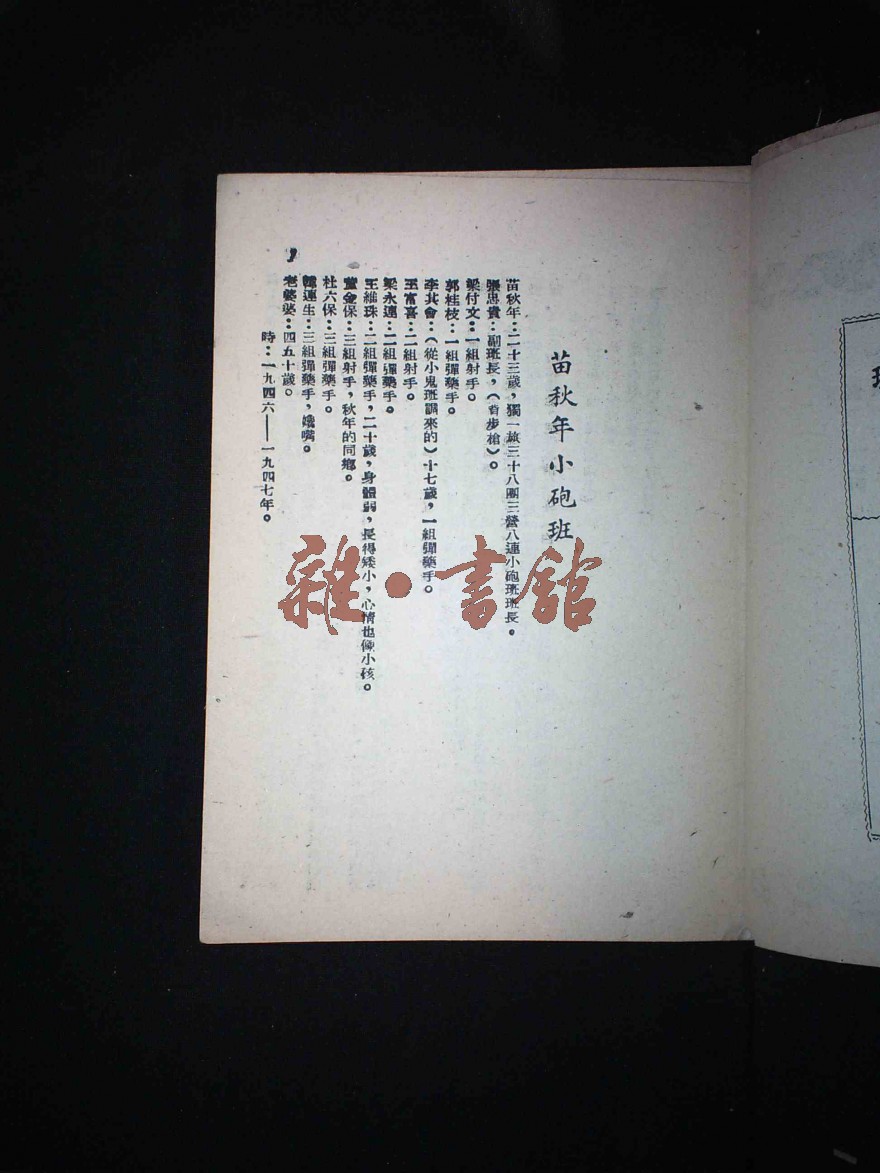 苗秋年小砲班
苗秋年：二十三歲，獨一旅三十八團三營八連小砲班班長。
張忠貴：副班長，（背步槍）。
梁付文：一組射手。
郭桂枝：一組彈藥手。
李其會：（從小鬼班調來的）十七歲，一組彈藥手。
王富喜：二組射手。
梁永連：二組彈藥手。
王維珠：二組彈藥手，二十歲，身體弱，長得矮小，心情也像小孩。
董金保：三組射手，秋年的同鄉。
杜六保：三組彈藥手。
韓連生：三組彈藥手，嘴。
老婆婆：四五十歲。
時：一九四六——一九四七年。
雜·書館